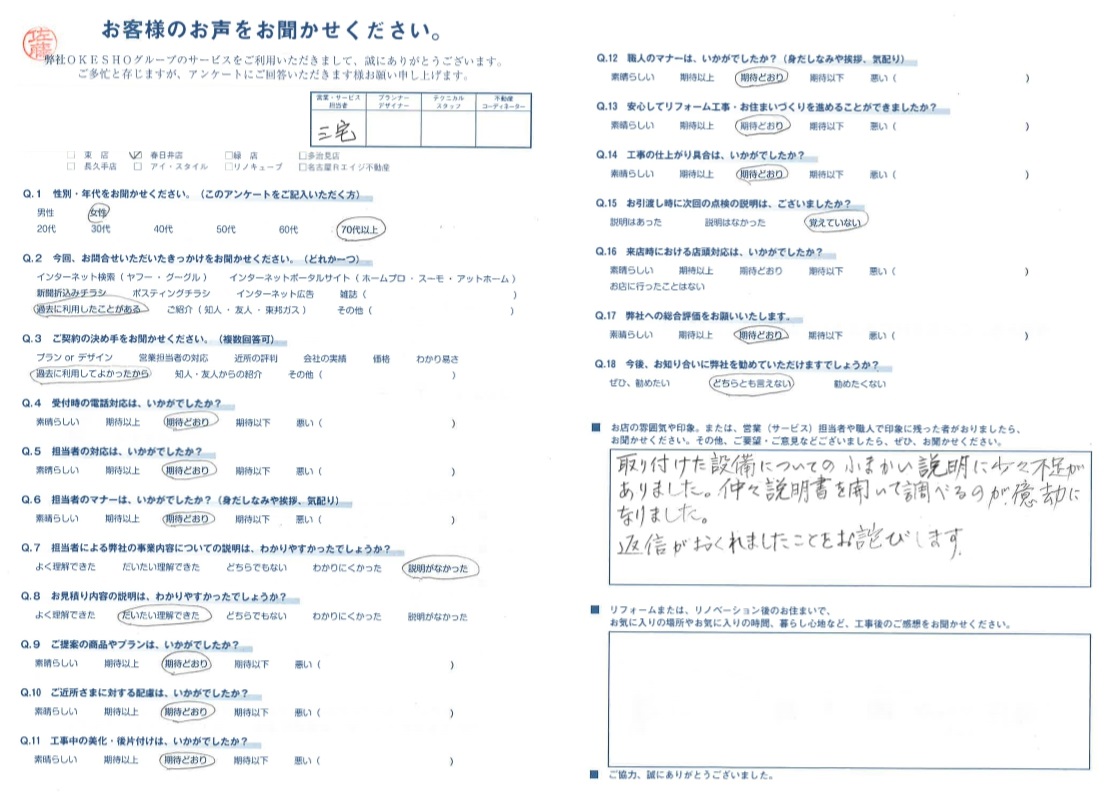 お客様のお声をお聞かせください。
佐藤
弊社OKESHOグループのサービスをご利用いただきまして、誠にありがとうございます。
ご多忙と存じますが、アンケートにご回答いただきます様お願い申し上げます。
営業・サービス担当者 プランナーデザイナー テクニカルスタッフ 不動産コーディネーター
三宅
□ 東店 ☑ 春日井店 □緑店 □多治見店
□ 長久手店 □ アイ・スタイル □リノキューブ □名古屋Rエイジ不動産
Q.1 性別・年代をお聞かせください。(このアンケートをご記入いただく方)
男性 女性
20代 30代 40代 50代 60代 70代以上
Q.2 今回、お問合せいただいたきっかけをお聞かせください。(どれか一つ)
インターネット検索(ヤフー・グーグル) インターネットポータルサイト(ホームプロ・スーモ・アットホーム)
新聞折込みチラシ ポスティングチラシ インターネット広告 雑誌( )
過去に利用したことがある ご紹介(知人・友人・東邦ガス) その他( )
Q.3 ご契約の決め手をお聞かせください。(複数回答可)
プラン or デザイン 営業担当者の対応 近所の評判 会社の実績 価格 わかり易さ
過去に利用してよかったから 知人・友人からの紹介 その他( )
Q.4 受付時の電話対応は、いかがでしたか?
素晴らしい 期待以上 期待どおり 期待以下 悪い( )
Q.5 担当者の対応は、いかがでしたか?
素晴らしい 期待以上 期待どおり 期待以下 悪い( )
Q.6 担当者のマナーは、いかがでしたか?(身だしなみや挨拶、気配り)
素晴らしい 期待以上 期待どおり 期待以下 悪い( )
Q.7 担当者による弊社の事業内容についての説明は、わかりやすかったでしょうか?
よく理解できた だいたい理解できた どちらでもない わかりにくかった 説明がなかった
Q.8 お見積り内容の説明は、わかりやすかったでしょうか?
よく理解できた だいたい理解できた どちらでもない わかりにくかった 説明がなかった
Q.9 ご提案の商品やプランは、いかがでしたか?
素晴らしい 期待以上 期待どおり 期待以下 悪い( )
Q.10 ご近所さまに対する配慮は、いかがでしたか?
素晴らしい 期待以上 期待どおり 期待以下 悪い( )
Q.11 工事中の美化・後片付けは、いかがでしたか?
素晴らしい 期待以上 期待どおり 期待以下 悪い( )
Q.12 職人のマナーは、いかがでしたか?(身だしなみや挨拶、気配り)
素晴らしい 期待以上 期待どおり 期待以下 悪い( )
Q.13 安心してリフォーム工事・お住まいづくりを進めることができましたか?
素晴らしい 期待以上 期待どおり 期待以下 悪い( )
Q.14 工事の仕上がり具合は、いかがでしたか?
素晴らしい 期待以上 期待どおり 期待以下 悪い( )
Q.15 お引渡し時に次回の点検の説明は、ございましたか?
説明はあった 説明はなかった 覚えていない
Q.16 来店時における店頭対応は、いかがでしたか?
素晴らしい 期待以上 期待どおり 期待以下 悪い( )
お店に行ったことはない
Q.17 弊社への総合評価をお願いいたします。
素晴らしい 期待以上 期待どおり 期待以下 悪い( )
Q.18 今後、お知り合いに弊社を勧めていただけますでしょうか?
ぜひ、勧めたい どちらとも言えない 勧めたくない
■ お店の雰囲気や印象。または、営業(サービス)担当者や職人で印象に残った者がおりましたら、
お聞かせください。その他、ご要望・ご意見などございましたら、ぜひ、お聞かせください。
取り付けた設備についての小まかい説明に少々不足が
ありました。仲々説明書を開いて調べるのが、億劫に
なりました。
返信がおくれましたことをお詫びします。
■ リフォームまたは、リノベーション後のお住まいで、
お気に入りの場所やお気に入りの時間、暮らし心地など、工事後のご感想をお聞かせください。
■ ご協力、誠にありがとうございました。